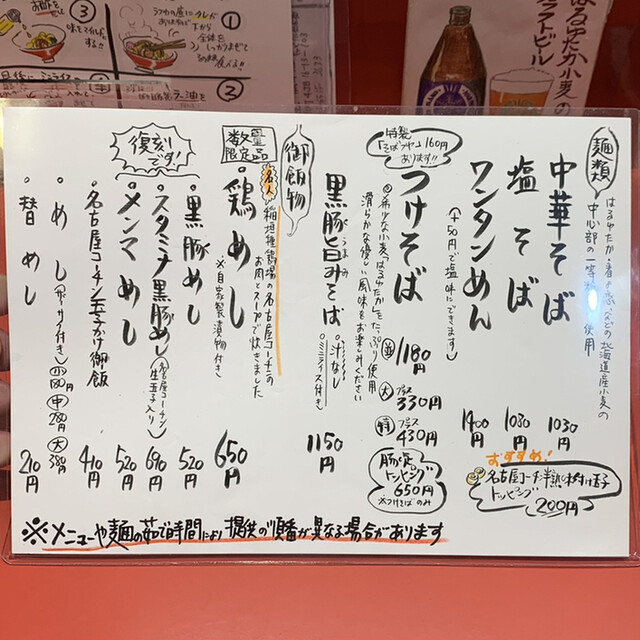 麺類
はるゆたか・春よ恋などの北海道産小麦の
中心部の一等粉使用
中華そば 1030円
塩そば 1030円
ワンタンめん 1400円
(+50円で塩味にできます)
おすすめ!
名古屋コーチン半熟味付け玉子
トッピング 200円
特製
「そばつゆ」160円
あります!!
つけそば
希少な小麦「はるゆたか」をたっぷり使用
滑らかな優しい風味をお楽しみください
並 1180円
大 プラス 330円
特 プラス 430円
トッピング
650円
※つけそばのみ
黒豚旨みそば 1150円
うまみ
汁なし
ミニライス付き
御飯物
数量
限定品
名人 稲垣種鶏場の名古屋コーチンの
お肉とスープで炊きました
・鶏めし 650円
※自家製漬物付き
・黒豚めし 520円
復刻
です!
・スタミナ黒豚めし 690円
(名古屋コーチン
生玉子入り)
・メンマめし 520円
・名古屋コーチン玉子かけ御飯 410円
・めし 小180円 中280円 大380円
・替めし 210円
※メニューや麺の茹で時間により提供の順番が異なる場合があります
①
全体を
しっかりまぜて
②
③
味をマイルド
する!!
はるゆたか小麦の
クラフトビール